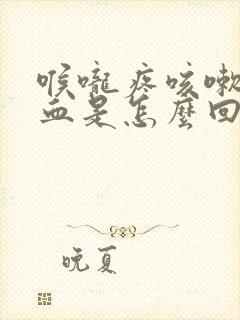 喉嚨疼咳嗽
血是怎麼回
晚夏